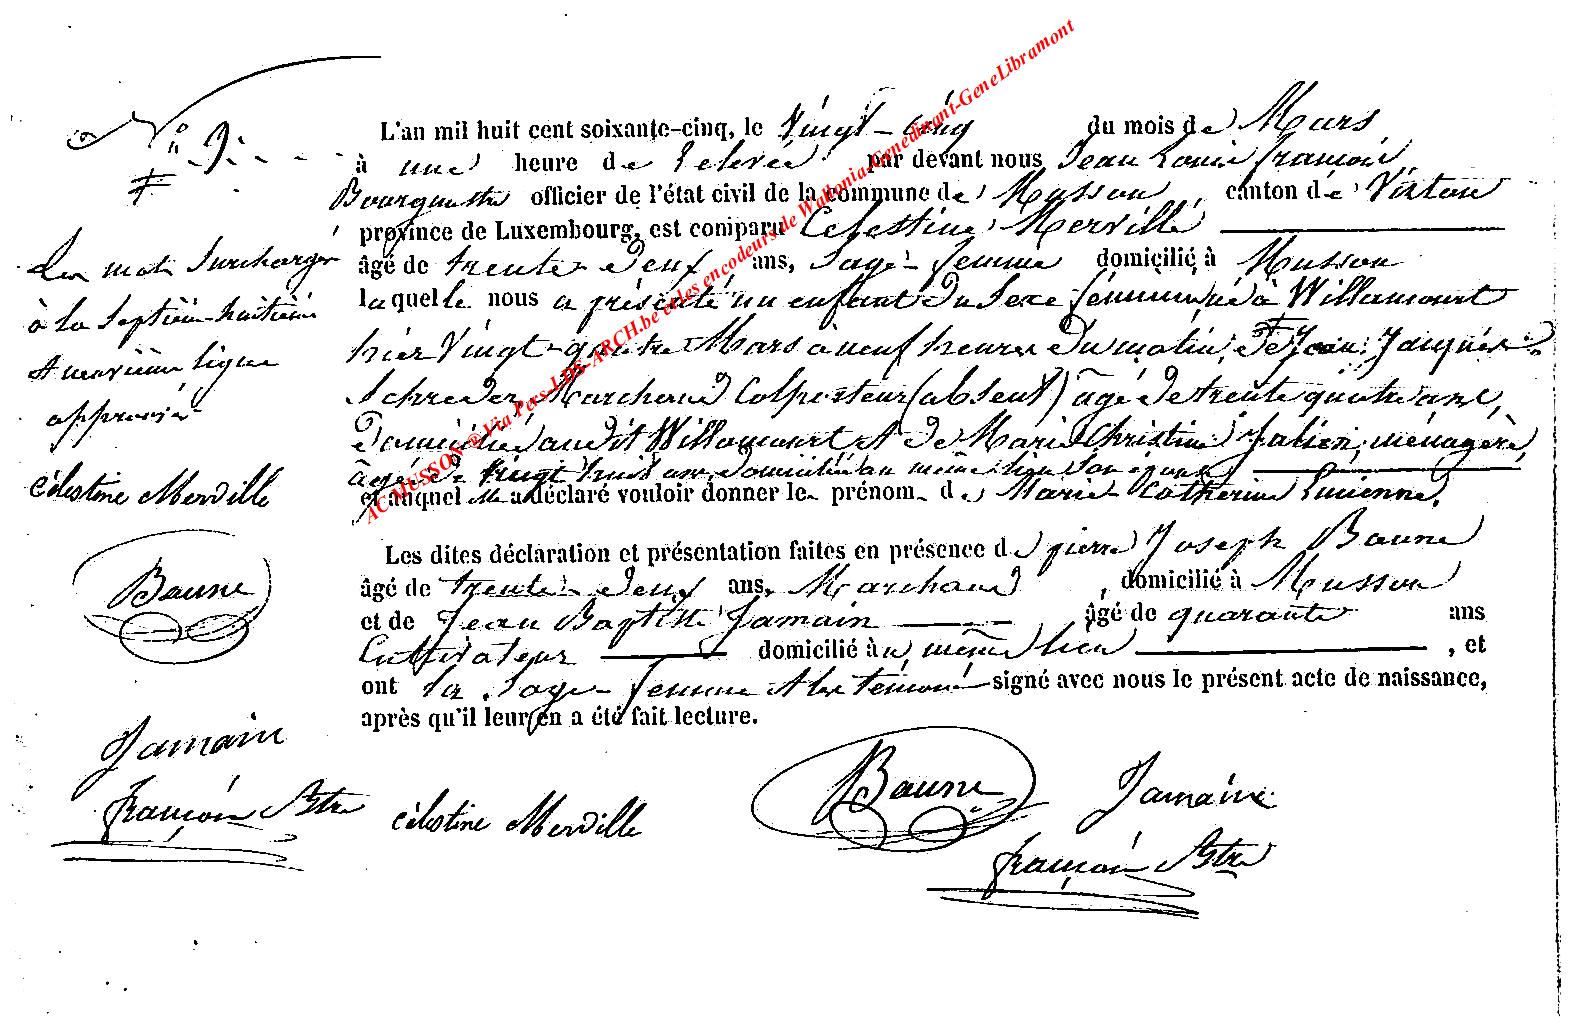 N° 9.
L'an mil huit cent soixante-cinq, le Vingt-cinq du mois de Mars
à une heure de relevée par devant nous Jean Louis françois
Bourgmestre officier de l'état civil de la commune de Musson, canton de Virton
province de Luxembourg, est comparu Celestine Merville
âgé de trente-deux ans, Sage-femme domicilié à Musson
laquelle nous a présenté un enfant du sexe féminin, né à Willancourt
hier Vingt-quatre Mars à neuf heures du matin, de Jean Jacques
Schreder, Marchand Colporteur (absent) âgé de trente quatre ans,
domicilié audit Willancourt et de Marie Christine Jalien, ménagère,
âgée de vingt huit ans, domiciliée au même lieu son épouse
et auquel elle a déclaré vouloir donner le prénom de Marie Catherine Lucienne.
Les dites déclaration et présentation faites en présence de pierre Joseph Baune
âgé de trente-deux ans, Marchand, domicilié à Musson
et de Jean Baptiste Jamain âgé de quarante ans
Cultivateur domicilié au même lieu, et
ont la Sage-femme et les témoins signé avec nous le présent acte de naissance,
après qu'il leur en a été fait lecture.
Les mots surchargés
à la septième-huitième
et neuvième ligne
approuvés
célestine Merville
Baune
Jamain
françois Bstre
célestine Merville
Baune
Jamaine
françois Bstre
AC MUSSON @ Via Pers-LDS-ARCH.be et les encodeurs de Wallonia-Genedinant-GeneLibramont